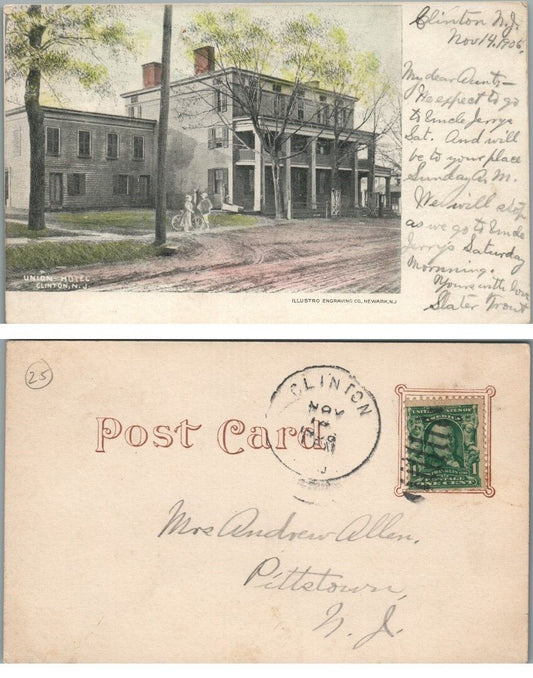 Clinton N.J.
Nov 14, 1906.
My dear Aunt-
We expect to go
to Uncle Jerry's
Sat. And will
be to your place
Sunday A.M.
We will stop
as we go to Uncle
Jerry's Saturday
Mornning.
Yours with love
Slater Trout
UNION HOTEL
CLINTON, N.J.
ILLUSTRO ENGRAVING CO., NEWARK, N.J.
25
Post Card
CLINTON
NOV
N J
UNITED STATES OF
AMERICA
FRANKLIN
1
POSTAGE
ONE CENT
Mrs Andrew Allen.
Pittstown,
N. J.